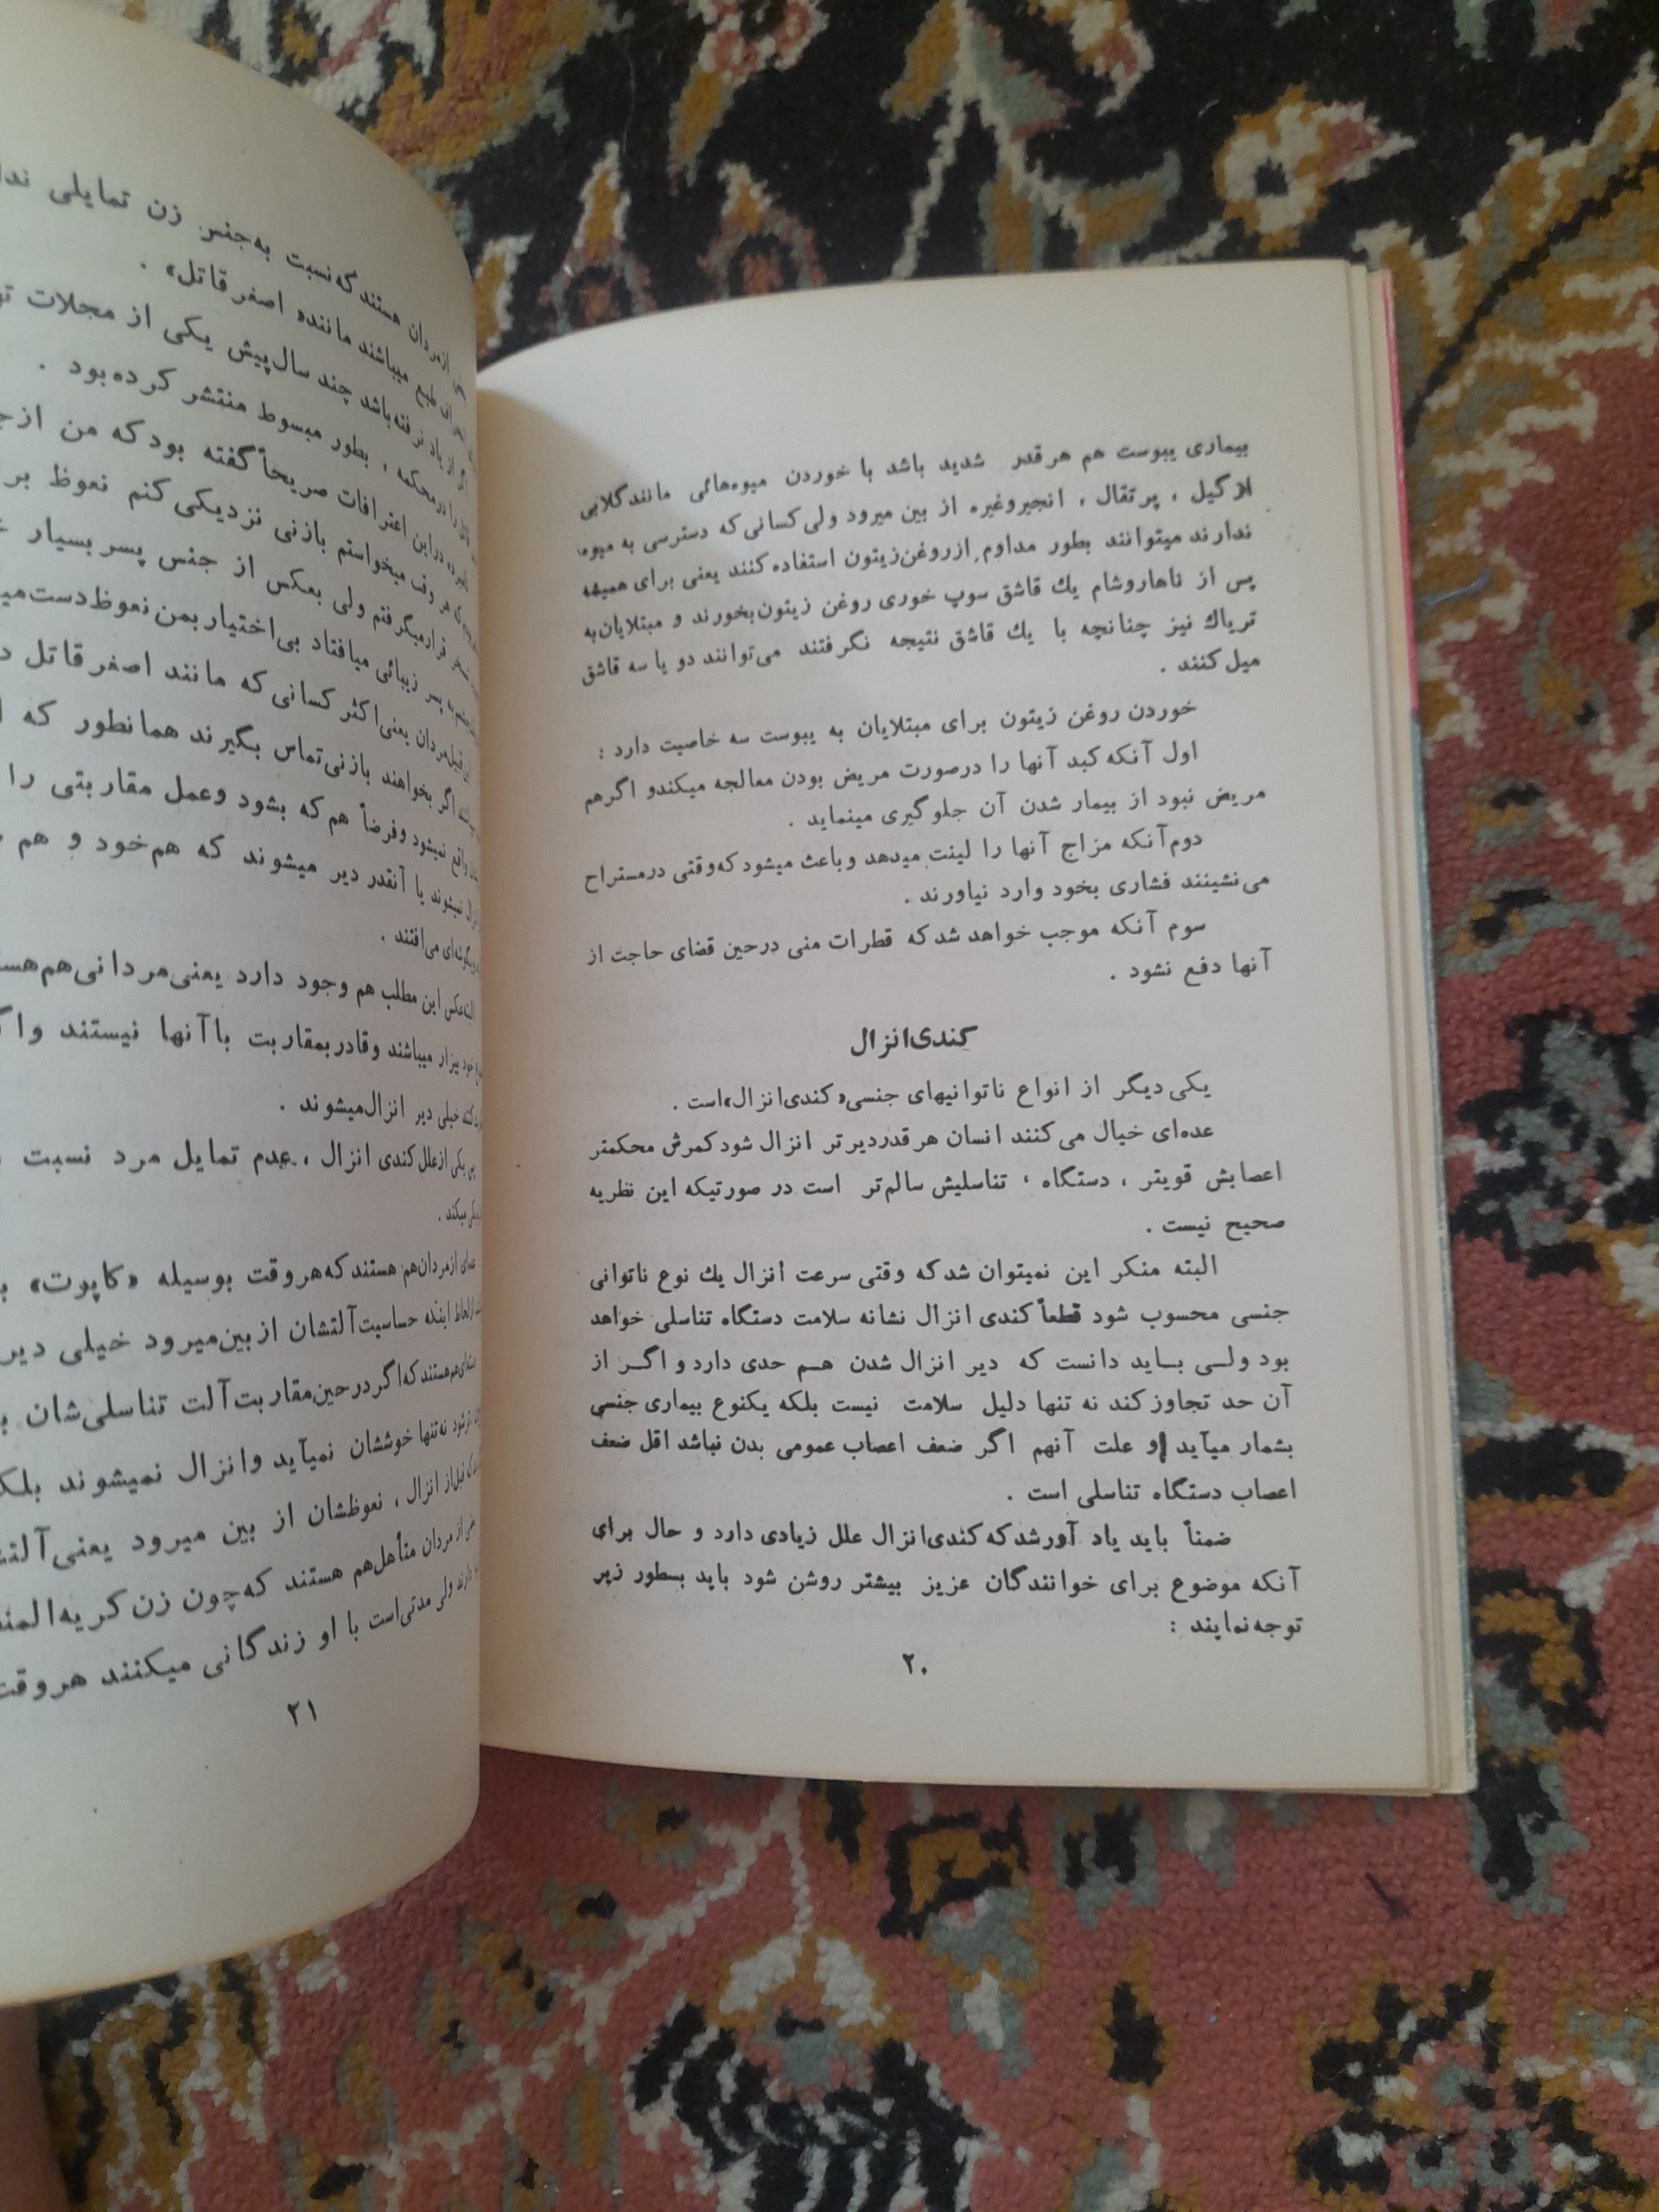 بیماری یبوست هم هرقدر شدید باشد با خوردن میوه‌هائی مانند گلابی
ازگیل ، پرتقال ، انجیر وغیره از بین میرود ولی کسانی که دسترسی به میوه
ندارند میتوانند بطور مداوم از روغن زیتون استفاده کنند یعنی برای همیشه
پس از ناهار وشام یك قاشق سوپ خوری روغن زیتون بخورند و مبتلایان به
تریاك نیز چنانچه با یك قاشق نتیجه نگرفتند می‌توانند دو یا سه قاشق
میل کنند .
خوردن روغن زیتون برای مبتلایان به یبوست سه خاصیت دارد :
اول آنکه کبد آنها را درصورت مریض بودن معالجه میکند و اگر هم
مریض نبود از بیمار شدن آن جلوگیری مینماید .
دوم آنکه مزاج آنها را لینت میدهد و باعث میشود که وقتی درمستراح
می‌نشینند فشاری بخود وارد نیاورند .
سوم آنکه موجب خواهد شد که قطرات منی درحین قضای حاجت از
آنها دفع نشود .
کندی انزال
یکی دیگر از انواع ناتوانیهای جنسی «کندی انزال» است .
عده‌ای خیال می‌کنند انسان هر قدر دیرتر انزال شود کمرش محکمتر
اعصابش قویتر ، دستگاه ، تناسلیش سالم‌تر است در صورتیکه این نظریه
صحیح نیست .
البته منکر این نمیتوان شد که وقتی سرعت انزال یك نوع ناتوانی
جنسی محسوب شود قطعاً کندی انزال نشانه سلامت دستگاه تناسلی خواهد
بود ولـی بـاید دانست که دیر انزال شدن هـم حدی دارد و اگـر از
آن حد تجاوز کند نه تنها دلیل سلامت نیست بلکه یکنوع بیماری جنسی
بشمار میآید و علت آنهم اگر ضعف اعصاب عمومی بدن نباشد اقل ضعف
اعصاب دستگاه تناسلی است .
ضمناً باید یاد آور شد که کندی انزال علل زیادی دارد و حال برای
آنکه موضوع برای خوانندگان عزیز بیشتر روشن شود باید بسطور زیر
توجه نمایند :
۲۰
از مردان هستند که نسبت به جنس زن تمایلی
میباشند مانند « اصغر قاتل» .
نرفته باشد چند سال پیش یکی از مجلات
را درمحکمه ، بطور مبسوط منتشر کرده بود .
دراین اعترافات صریحاً گفته بود که من از
هر وقت میخواستم بازنی نزدیکی کنم نعوظ
قرار میگرفتم ولی بعکس از جنس پسر بسیار
پسر زیبائی میافتاد بی‌اختیار بمن نعوظ دست
مردان یعنی اکثر کسانی که مانند اصغر قاتل
اگر بخواهند بازنی تماس بگیرند همانطور که
واقع نمیشود و فرضاً هم که بشود وعمل مقاربتی را
نمیشوند یا آنقدر دیر میشوند که هم خود و هم
می‌افتند .
البته عکس این مطلب هم وجود دارد یعنی مردانی هم
خود بیزار میباشند وقادر بمقاربت با آنها نیستند
خیلی دیر انزال میشوند .
یکی از علل کندی انزال ، عدم تمایل مرد نسبت
میکند .
عده‌ای از مردان هم هستند که هر وقت بوسیله «کاپوت»
از لحاظ اینکه حساسیت آلتشان از بین میرود خیلی دیر
هم هستند که اگر در حین مقاربت آلت تناسلی‌شان
نه تنها خوششان نمیآید و انزال نمیشوند
قبل از انزال ، نعوظشان از بین میرود یعنی
از مردان متأهل هم هستند که چون زن کریه
دارند ولی مدتی است با او زندگانی میکنند
۲۱